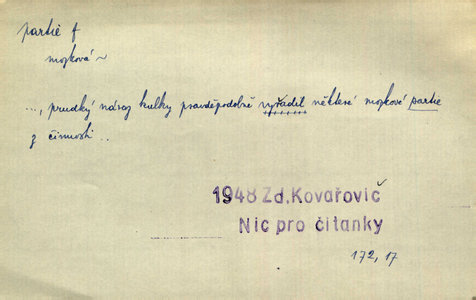 partie f
mozková ~
..., prudký náraz kulky pravděpodobně vyřadil některé mozkové partie
z činnosti ...
1948 Zd. Kovařovič
Nic pro čítanky
172, 17